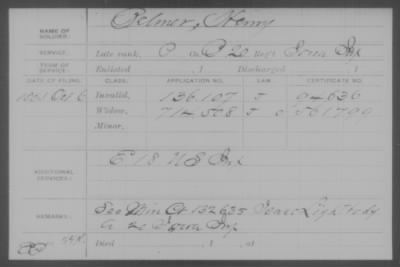 NAME OF SOLDIER: Delmer, Henry
SERVICE: Late rank, P Co. B 20 Reg't Iowa Inf
TERM OF SERVICE: Enlisted , 1 Discharged , 1
DATE OF FILING. CLASS. APPLICATION NO. LAW. CERTIFICATE NO.
Oct 6 Invalid, 136.107 94636
Widow, 714.508 561799
Minor,
ADDITIONAL SERVICES: E 18 US Inf
REMARKS: See Min Ct 132635 Isaac
G 20 Iowa Inf
Died , 1 , at